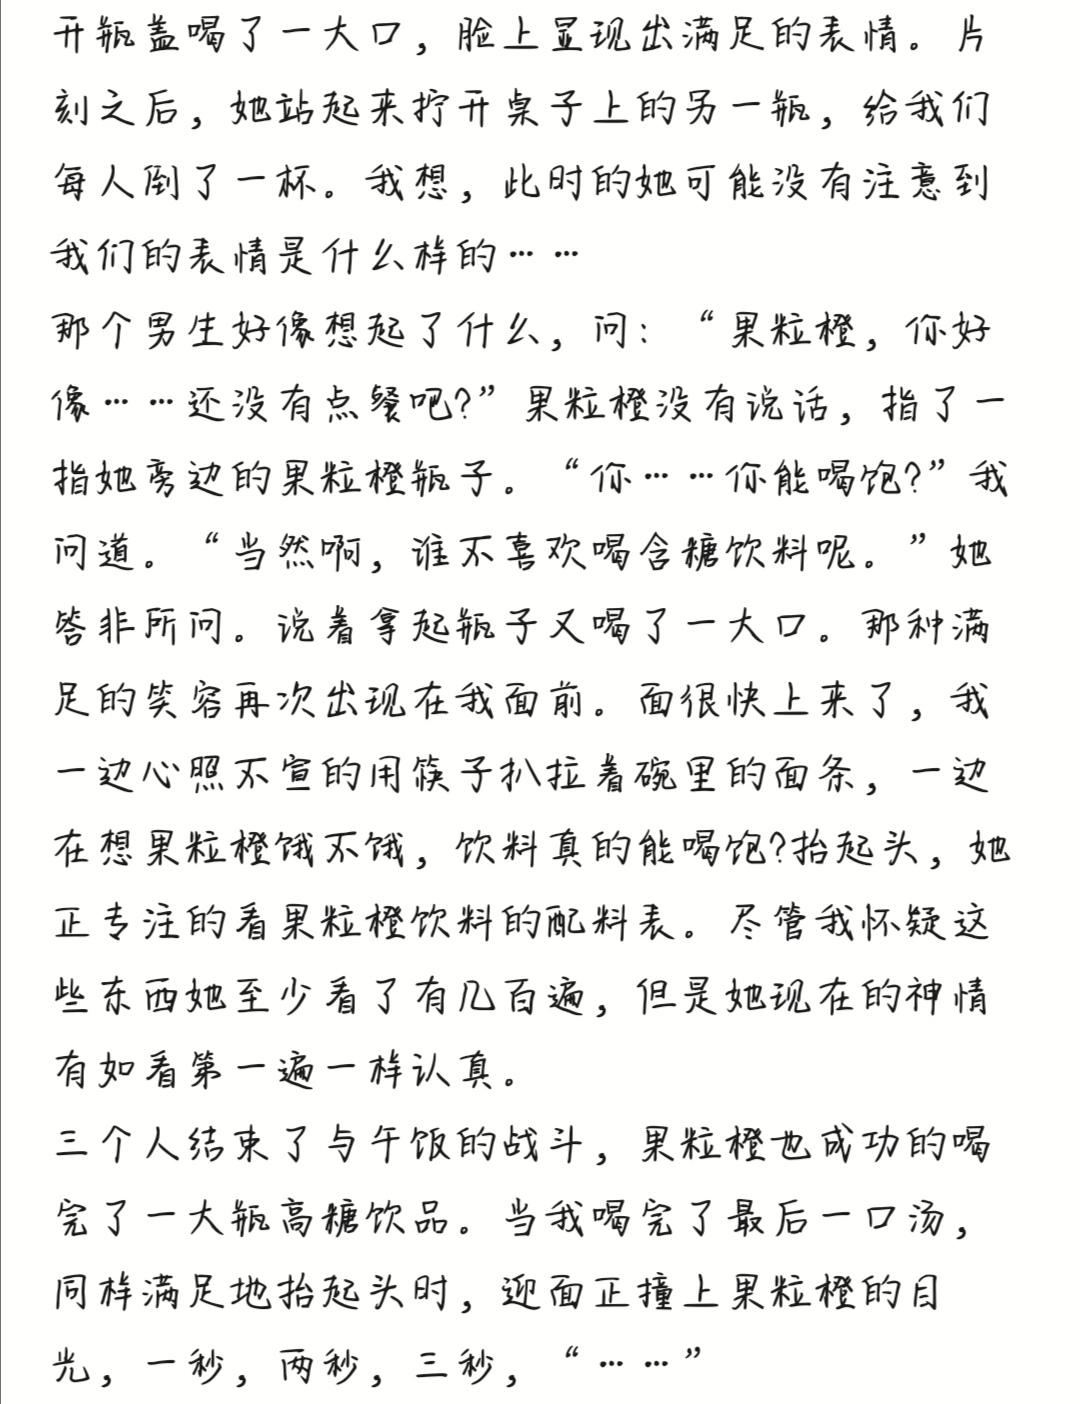 开瓶盖喝了一大口，脸上显现出满足的表情。片
刻之后，她站起来拧开桌子上的另一瓶，给我们
每人倒了一杯。我想，此时的她可能没有注意到
我们的表情是什么样的……
那个男生好像想起了什么，问：“果粒橙，你好
像……还没有点餐吧?”果粒橙没有说话，指了一
指她旁边的果粒橙瓶子。“你……你能喝饱?”我
问道。“当然啊，谁不喜欢喝含糖饮料呢。”她
答非所问。说着拿起瓶子又喝了一大口。那种满
足的笑容再次出现在我面前。面很快上来了，我
一边心照不宣的用筷子扒拉着碗里的面条，一边
在想果粒橙饿不饿，饮料真的能喝饱?抬起头，她
正专注的看果粒橙饮料的配料表。尽管我怀疑这
些东西她至少看了有几百遍，但是她现在的神情
有如看第一遍一样认真。
三个人结束了与午饭的战斗，果粒橙也成功的喝
完了一大瓶高糖饮品。当我喝完了最后一口汤，
同样满足地抬起头时，迎面正撞上果粒橙的目
光，一秒，两秒，三秒，“……”